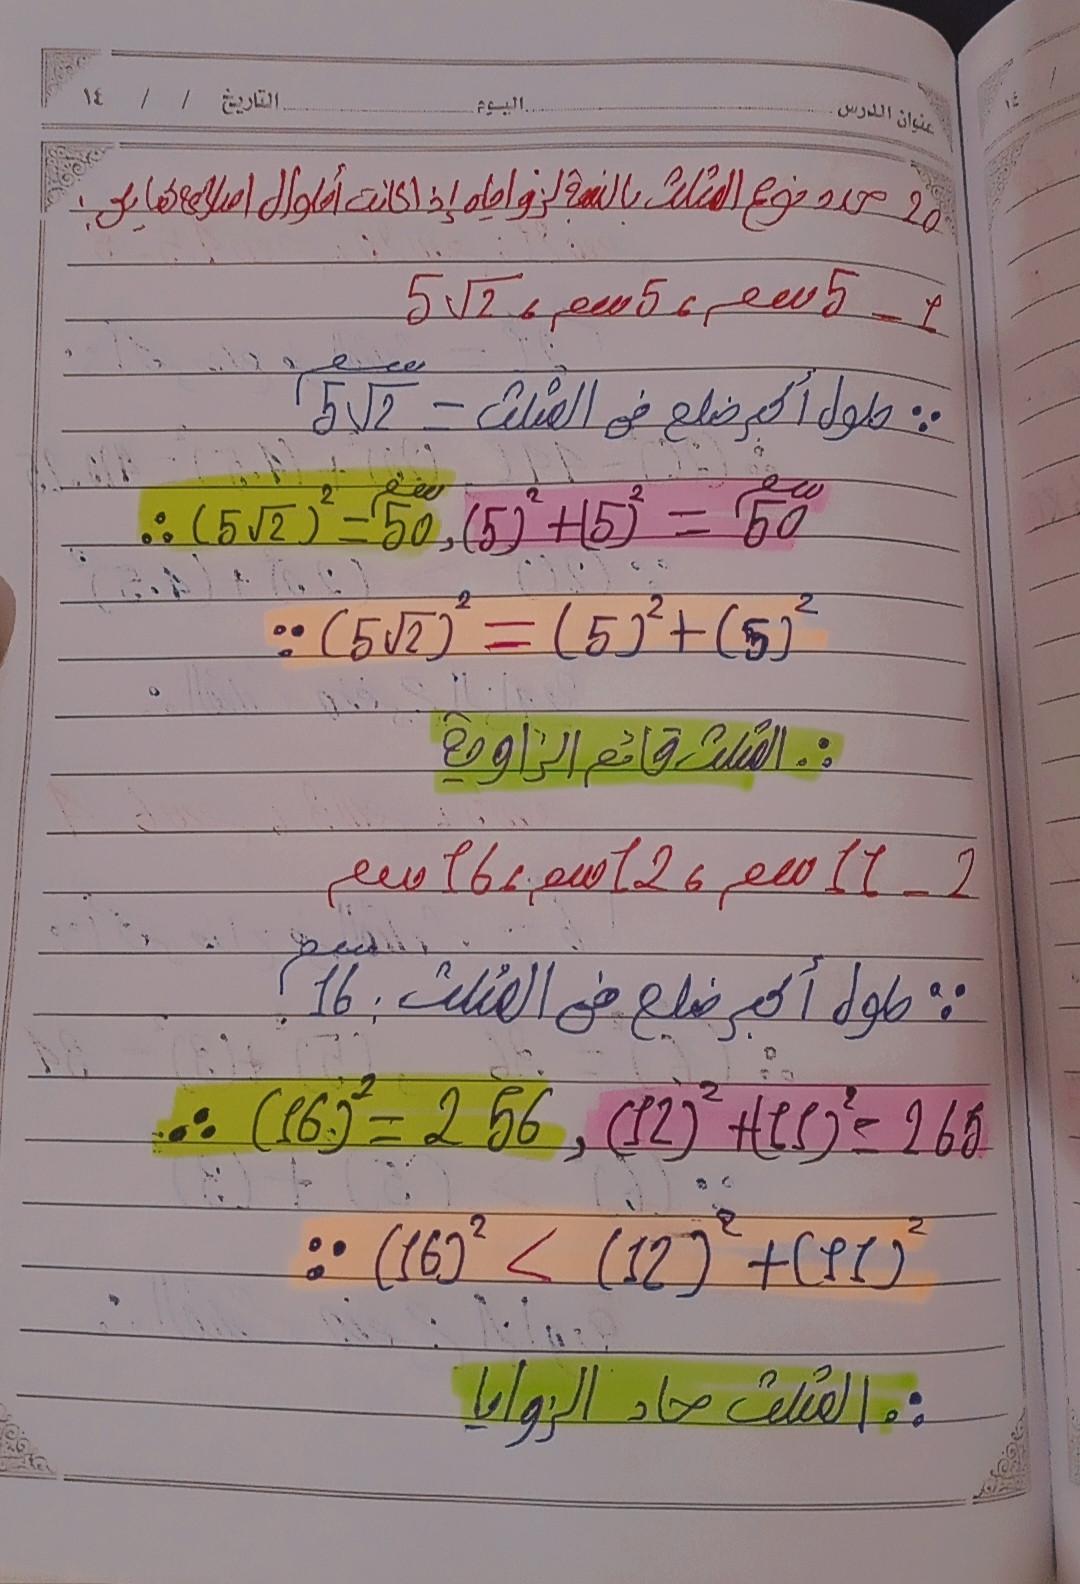 عنوان الدرس ............ اليوم ............ التاريخ / / ١٤
20 حدد نوع المثلث بالنسبة لزواياه إذا كانت أطوال اضلاعه كما يلى :
1 - 5 سم ، 5 سم ، 5√2
∵ طول أكبر ضلع فى المثلث = 5√2 سم
∴ (5√2)² = 50 سم , (5)² + (5)² = 50 سم
∵ (5√2)² = (5)² + (5)²
∴ المثلث قائم الزاوية
2 - 11 سم ، 12 سم ، 16 سم
∵ طول أكبر ضلع فى المثلث : 16 سم
∴ (16)² = 256 , (12)² + (11)² = 265
∵ (16)² < (12)² + (11)²
∴ المثلث حاد الزوايا